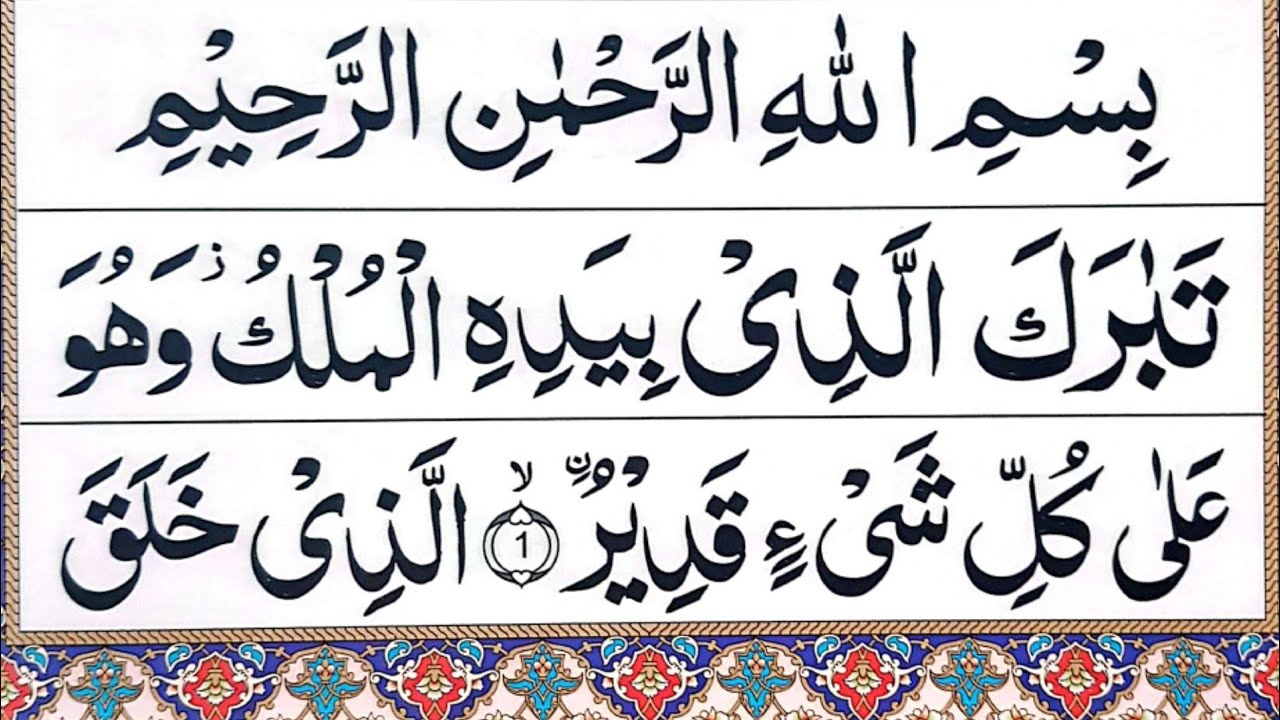 بِسْمِ اللهِ الرَّحْمٰنِ الرَّحِيْمِ
تَبٰرَكَ الَّذِیْ بِيَدِهِ الْمُلْكُ ؗ وَهُوَ
عَلٰی كُلِّ شَیْءٍ قَدِيْرُ ۨ ۙ 1 الَّذِیْ خَلَقَ